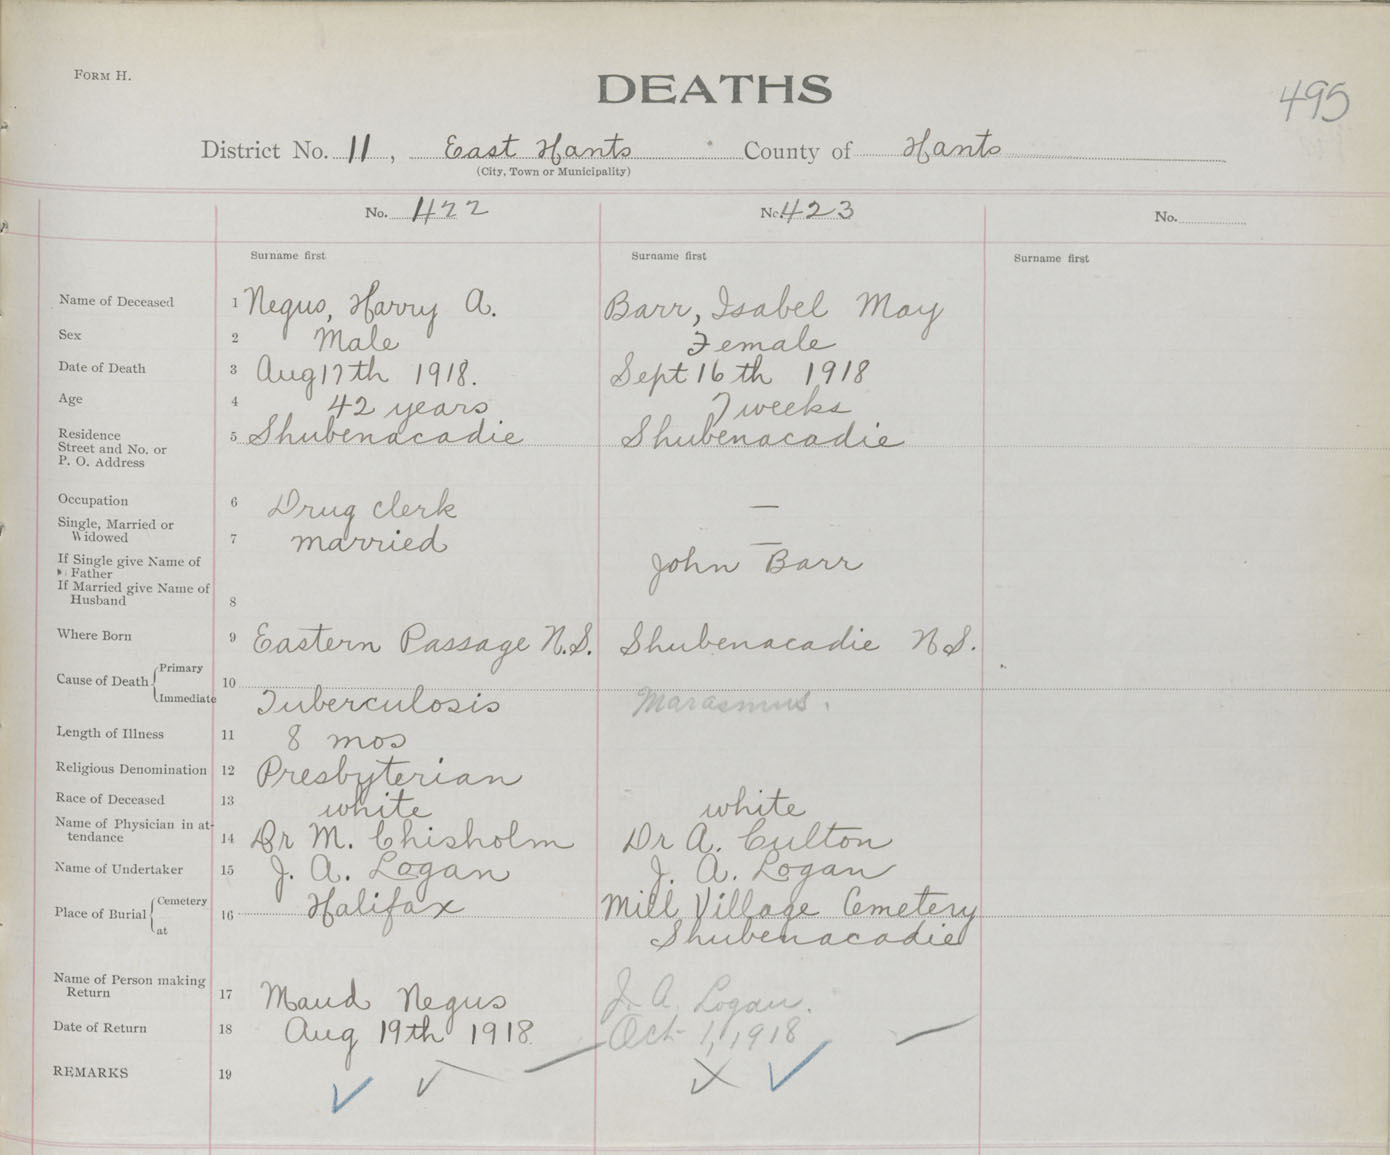 FORM H.
DEATHS
495
District No. 11, East Hants County of Hants
(City, Town or Municipality)
No. 422 No. 423 No.
Surname first Surname first Surname first
Name of Deceased 1 Negus, Harry A. Barr, Isabel May
Sex 2 Male Female
Date of Death 3 Aug 17th 1918. Sept 16th 1918
Age 4 42 years 7 weeks
Residence
Street and No. or
P. O. Address 5 Shubenacadie Shubenacadie
Occupation 6 Drug clerk —
Single, Married or
Widowed 7 married —
If Single give Name of
Father John Barr
If Married give Name of
Husband 8
Where Born 9 Eastern Passage N.S. Shubenacadie N S.
Cause of Death Primary 10
Immediate Tuberculosis Marasmus.
Length of Illness 11 8 mos
Religious Denomination 12 Presbyterian
Race of Deceased 13 white white
Name of Physician in at-
tendance 14 Dr M. Chisholm Dr A. Culton
Name of Undertaker 15 J. A. Logan J. A. Logan
Place of Burial Cemetery 16 Halifax Mill Village Cemetery
at Shubenacadie
Name of Person making
Return 17 Maud Negus J. A. Logan.
Date of Return 18 Aug 19th 1918 Oct 1, 1918
REMARKS 19